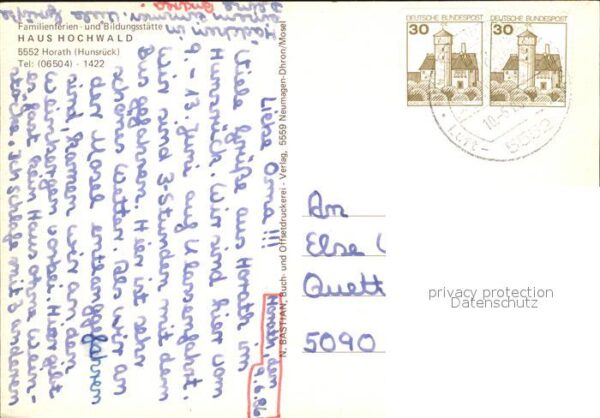 Familienferien - und Bildungsstätte
HAUS HOCHWALD
5552 Horath (Hunsrück)
Tel: (06504) - 1422
DEUTSCHE BUNDESPOST
30
DEUTSCHE BUNDESPOST
30
5559
N. BASTIAN, Buch- und Offsetdruckerei - Verlag, 5559 Neumagen-Dhron/Mosel
Horath, den
9.6.86
Liebe Oma!!!
Viele Grüße aus Horath im
Hunsrück. Wir sind hier vom
9. - 13. Juni auf Klassenfahrt.
Wir sind 3-Stunden mit dem
Bus gefahren. Hier ist sehr
schönes Wetter. Als wir an
der Mosel entlanggefahren
sind, kamen wir an den
Weinbergen vorbei. Hier gibt
es fast kein Haus ohne Wein-
Ich schlafe mit 3 anderen
Viele Grüße
Andrea
An
Else
Quett
5090
privacy protection
Datenschutz